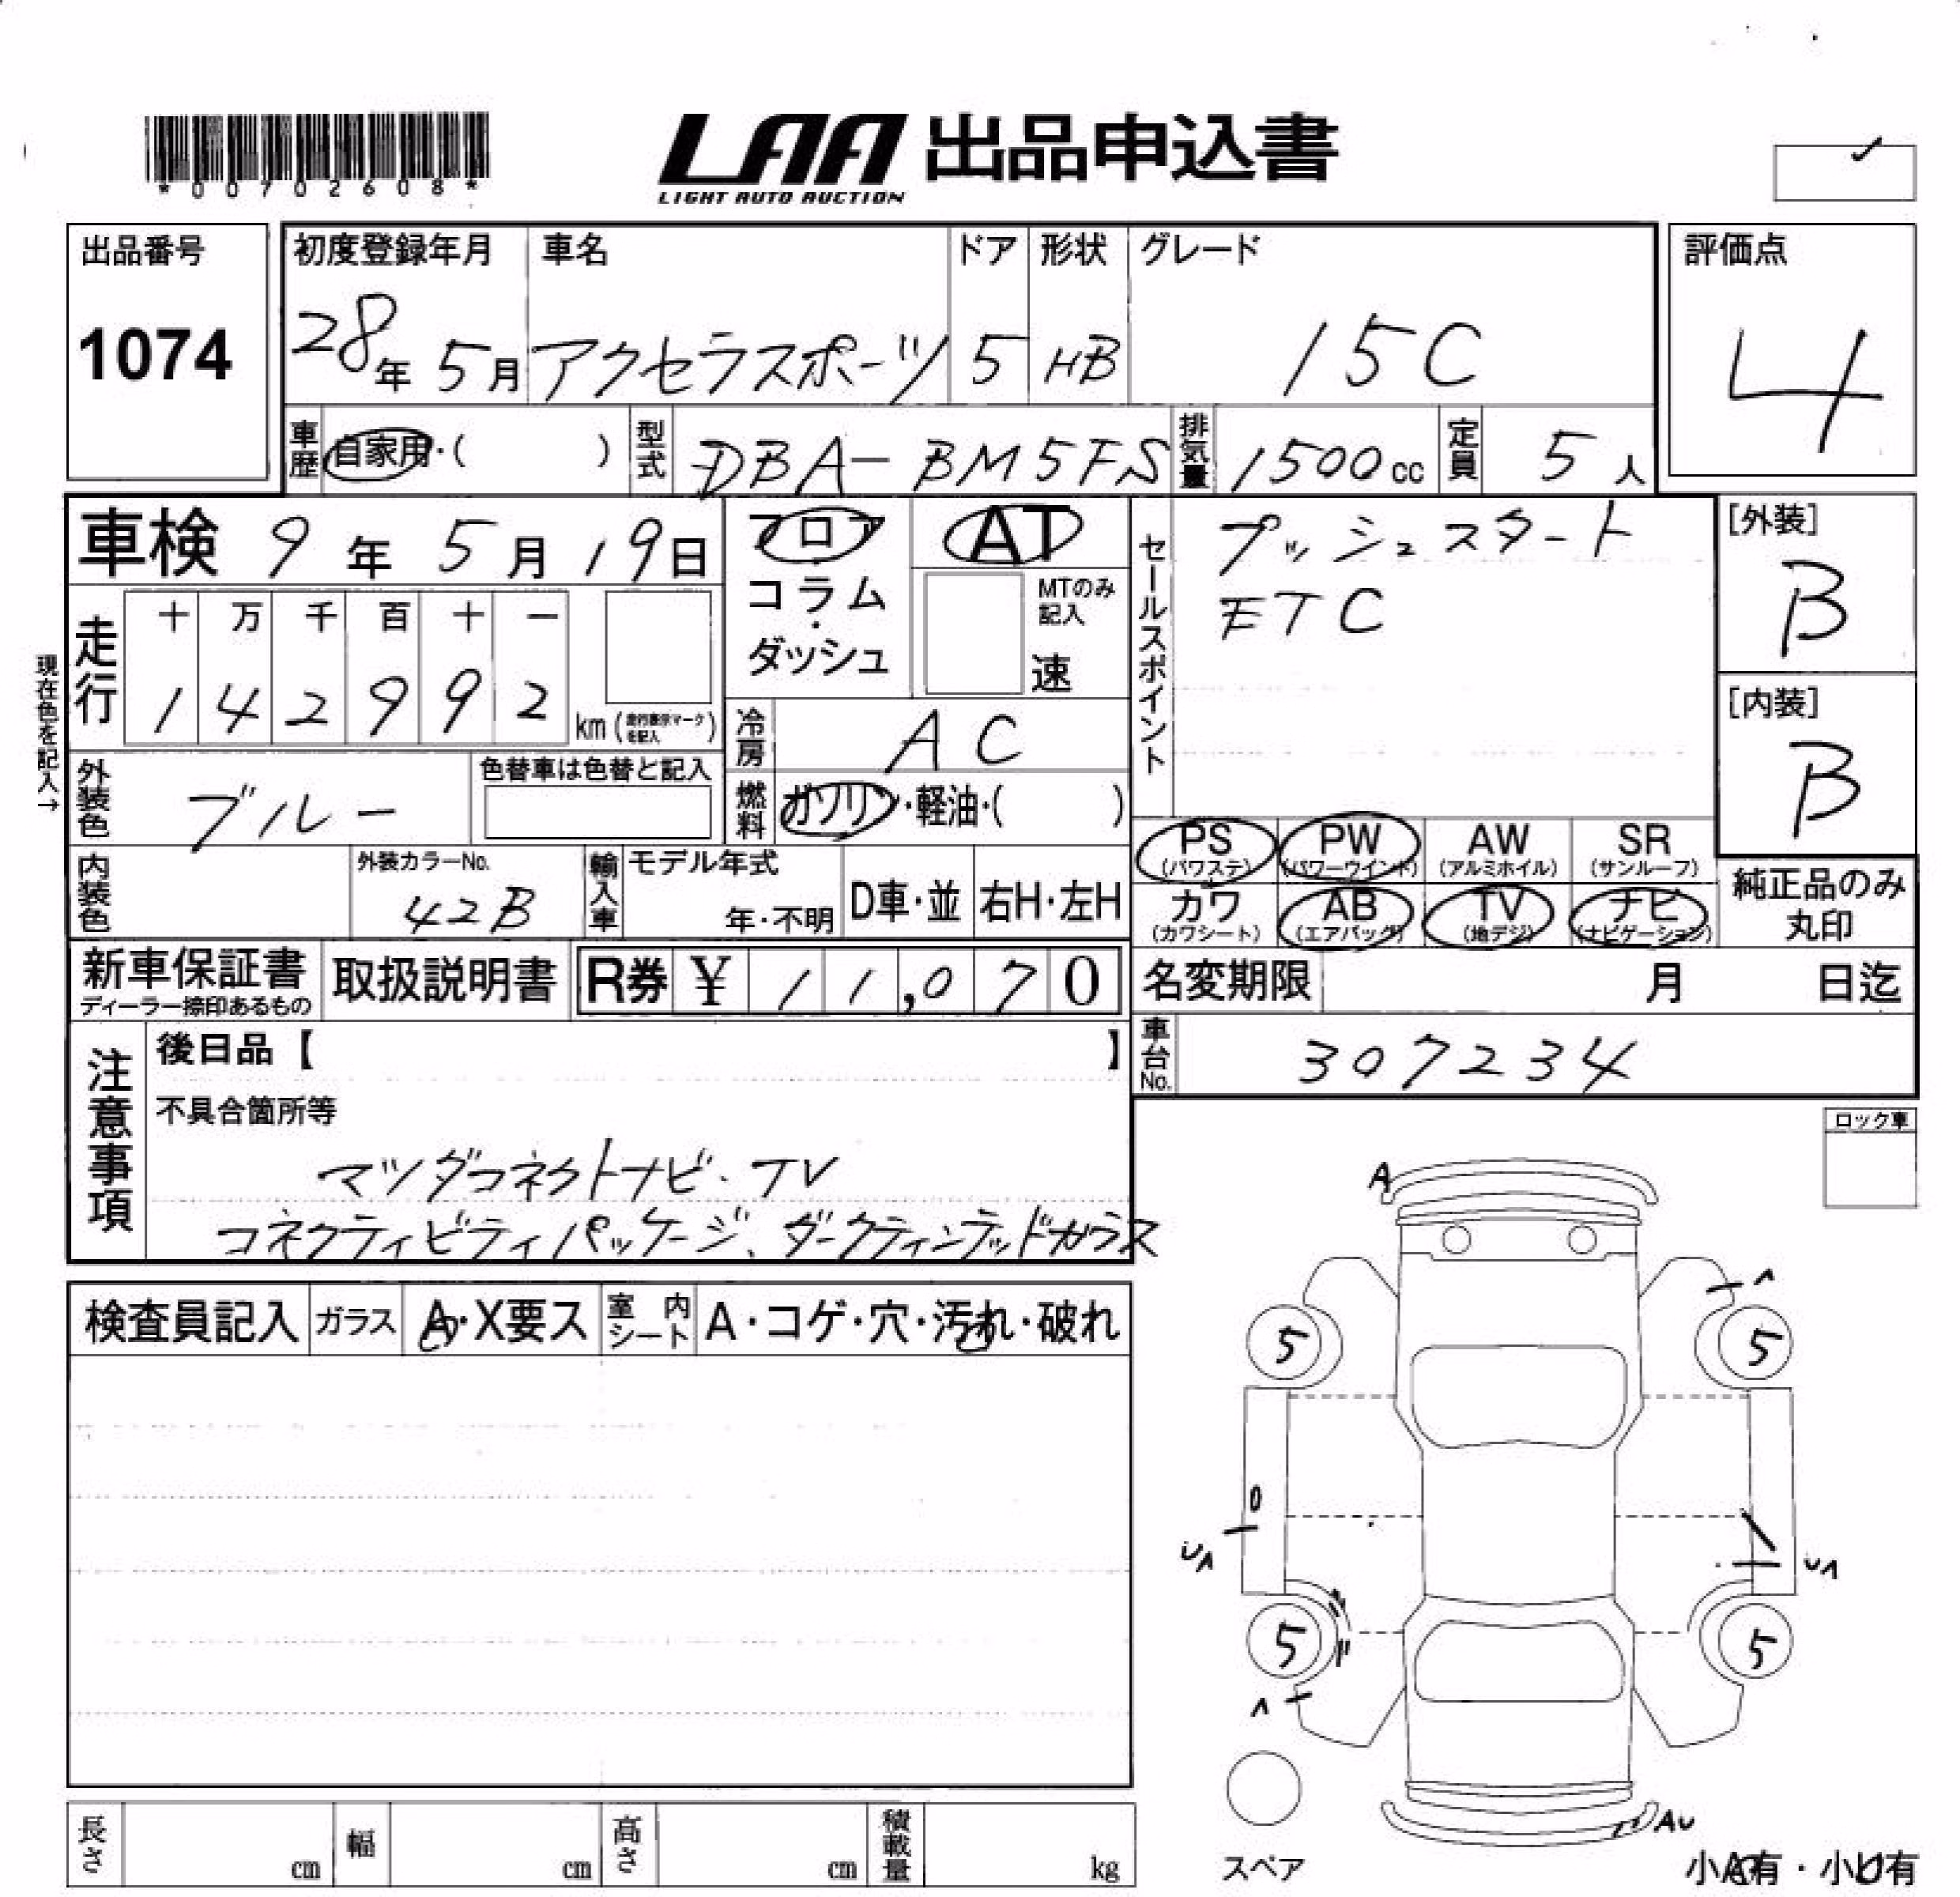 *00702608*
LAA 出品申込書
LIGHT AUTO AUCTION
出品番号
1074
初度登録年月
28年 5月
車名
アクセラスポーツ
ドア
5
形状
HB
グレード
15C
評価点
4
車歴 自家用・( )
型式 DBA-BM5FS
排気量 1500cc
定員 5人
車検 9年 5月 19日
現在色を記入→
走行
十 万 千 百 十 一
1 4 2 9 9 2
km(走行表示マークを記入)
フロア
コラム
・
ダッシュ
AT
MTのみ
記入
速
冷房 AC
燃料 ガソリン・軽油・( )
外装色 ブルー
色替車は色替と記入
内装色
外装カラーNo.
42B
輸入車
モデル年式
年・不明
D車・並
右H・左H
セールスポイント
プッシュスタート
ETC
[外装]
B
[内装]
B
PS
(パワステ)
PW
(パワーウインド)
AW
(アルミホイル)
SR
(サンルーフ)
カワ
(カワシート)
AB
(エアバッグ)
TV
(地デジ)
ナビ
(ナビゲーション)
純正品のみ
丸印
新車保証書
ディーラー捺印あるもの
取扱説明書
R券 ¥ 11,070
名変期限 月 日迄
車台No. 307234
注意事項
後日品【 】
不具合箇所等
マツダコネクトナビ・TV
コネクティビティパッケージ、ダークティンテッドガラス
ロック車
検査員記入
ガラス A・X要ス
室内シート A・コゲ・穴・汚れ・破れ
A
5
5
UA
UA
5
5
AU
スペア
小A有・小U有
長さ cm
幅 cm
高さ cm
積載量 kg